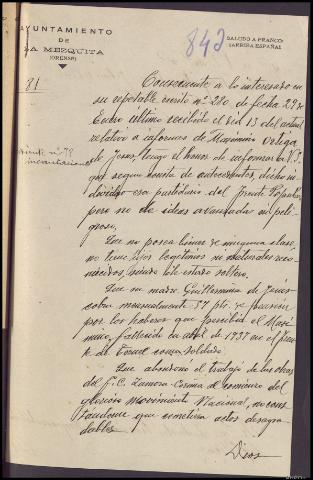 AYUNTAMIENTO
DE
LA MEZQUITA
(ORENSE)
842
SALUDO A FRANCO
¡ARRIBA ESPAÑA!
81
Consecuente a lo interesado en
su repetable escrito nº 280 de fecha 29 de
Enero ultimo recibido el dia 13 del actual
relativo a informes de Maximino Ortega
de Jesus, tengo el honor de informar a V.S.
que segun resulta de antecedentes, dicho in-
dividuo era partidario del Frente Popular,
pero no de ideas avanzadas ni peli-
groso,
Que no posea bienes de ninguna clase,
no tiene hijos legitimos ni naturales reco-
nocidos, siendo de estado soltero.
Que su madre Guillermina de Jesús
cobra mensualmente 57 pts. de pensión
por los haberes que percibia el Maxi-
mino, fallecido en abril de 1937 en el Fren-
te de Teruel como soldado.
Que abandonó el trabajo de las obras
del F.C. Zamora-Coruña al comienzo del
glorioso movimiento Nacional, no cons-
tandome que cometiera actos desagra-
dables.
Dios